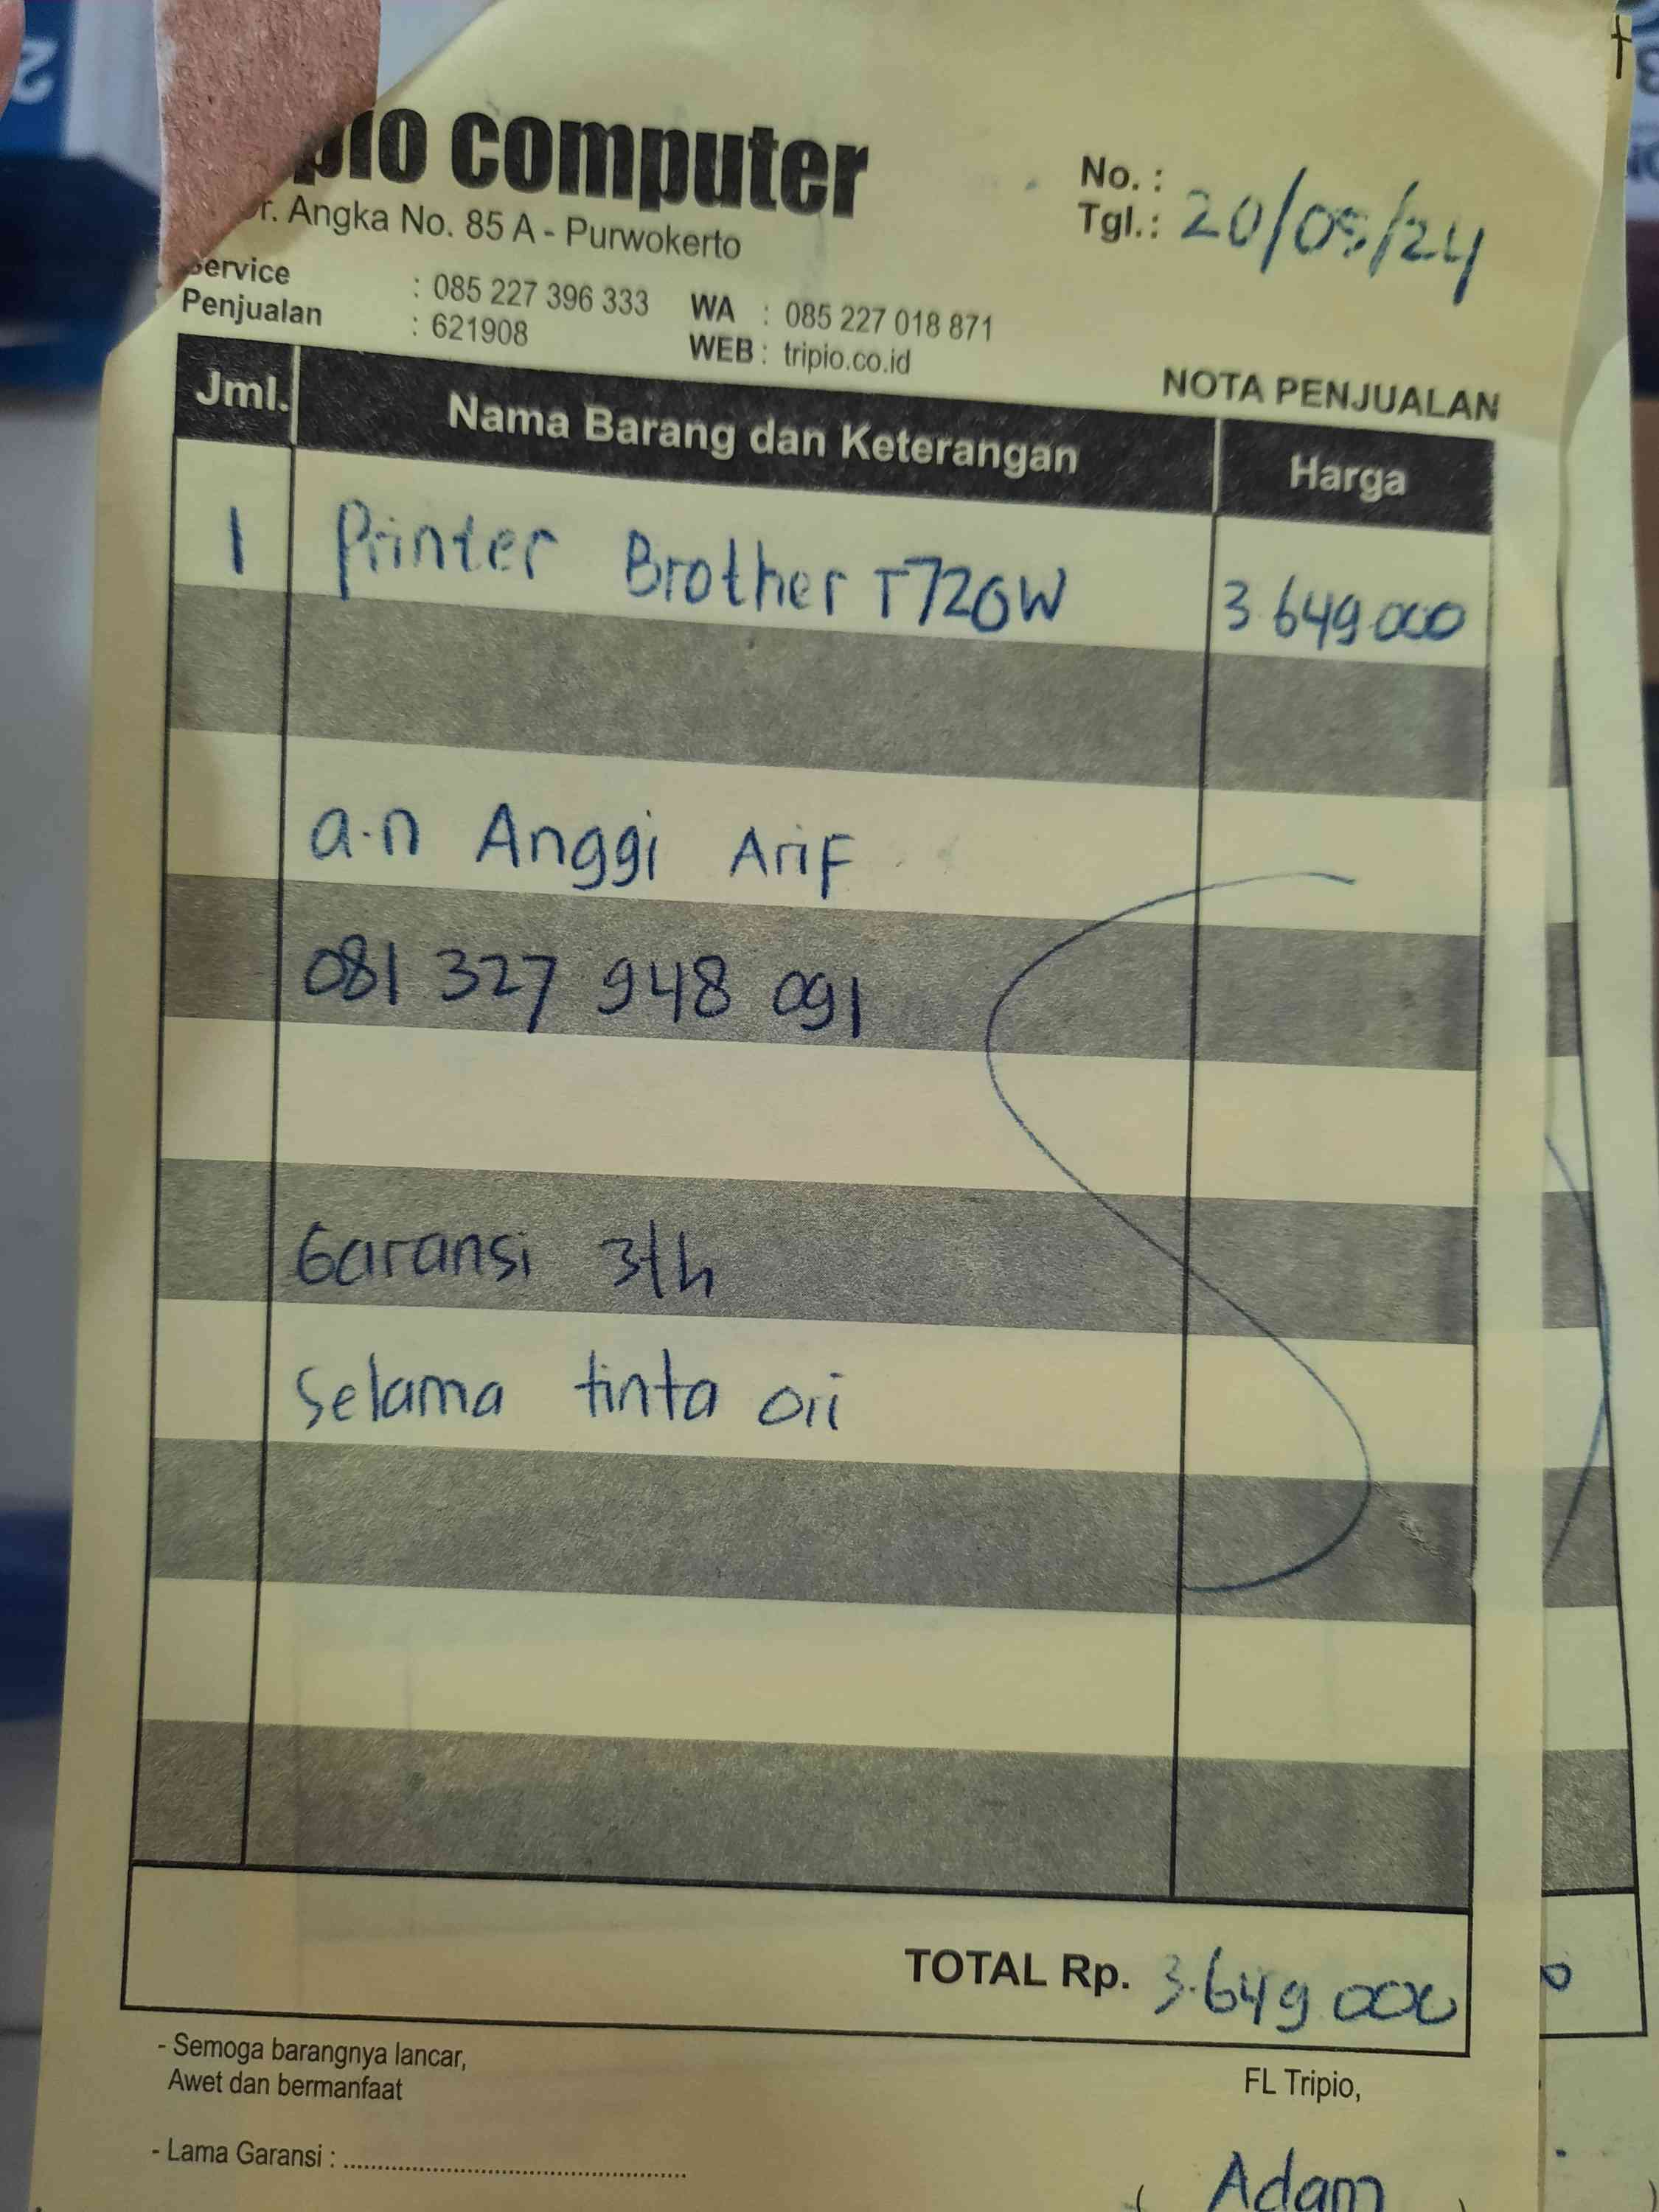 pio computer
Dr. Angka No. 85 A - Purwokerto
No. :
Tgl.: 20/05/24
Service : 085 227 396 333 WA : 085 227 018 871
Penjualan : 621908 WEB : tripio.co.id
NOTA PENJUALAN
Jml. Nama Barang dan Keterangan Harga
1 Printer Brother T720W 3.649.000
a.n Anggi Arif
081 327 948 091
Garansi 3th
Selama tinta ori
TOTAL Rp. 3.649.000
- Semoga barangnya lancar,
Awet dan bermanfaat
FL Tripio,
- Lama Garansi : ........................................................
( Adam )